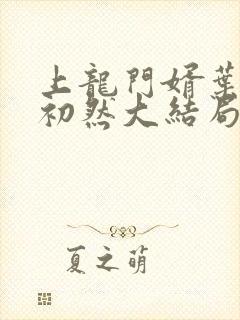 上龍門婿葉
初然大結局
夏之萌